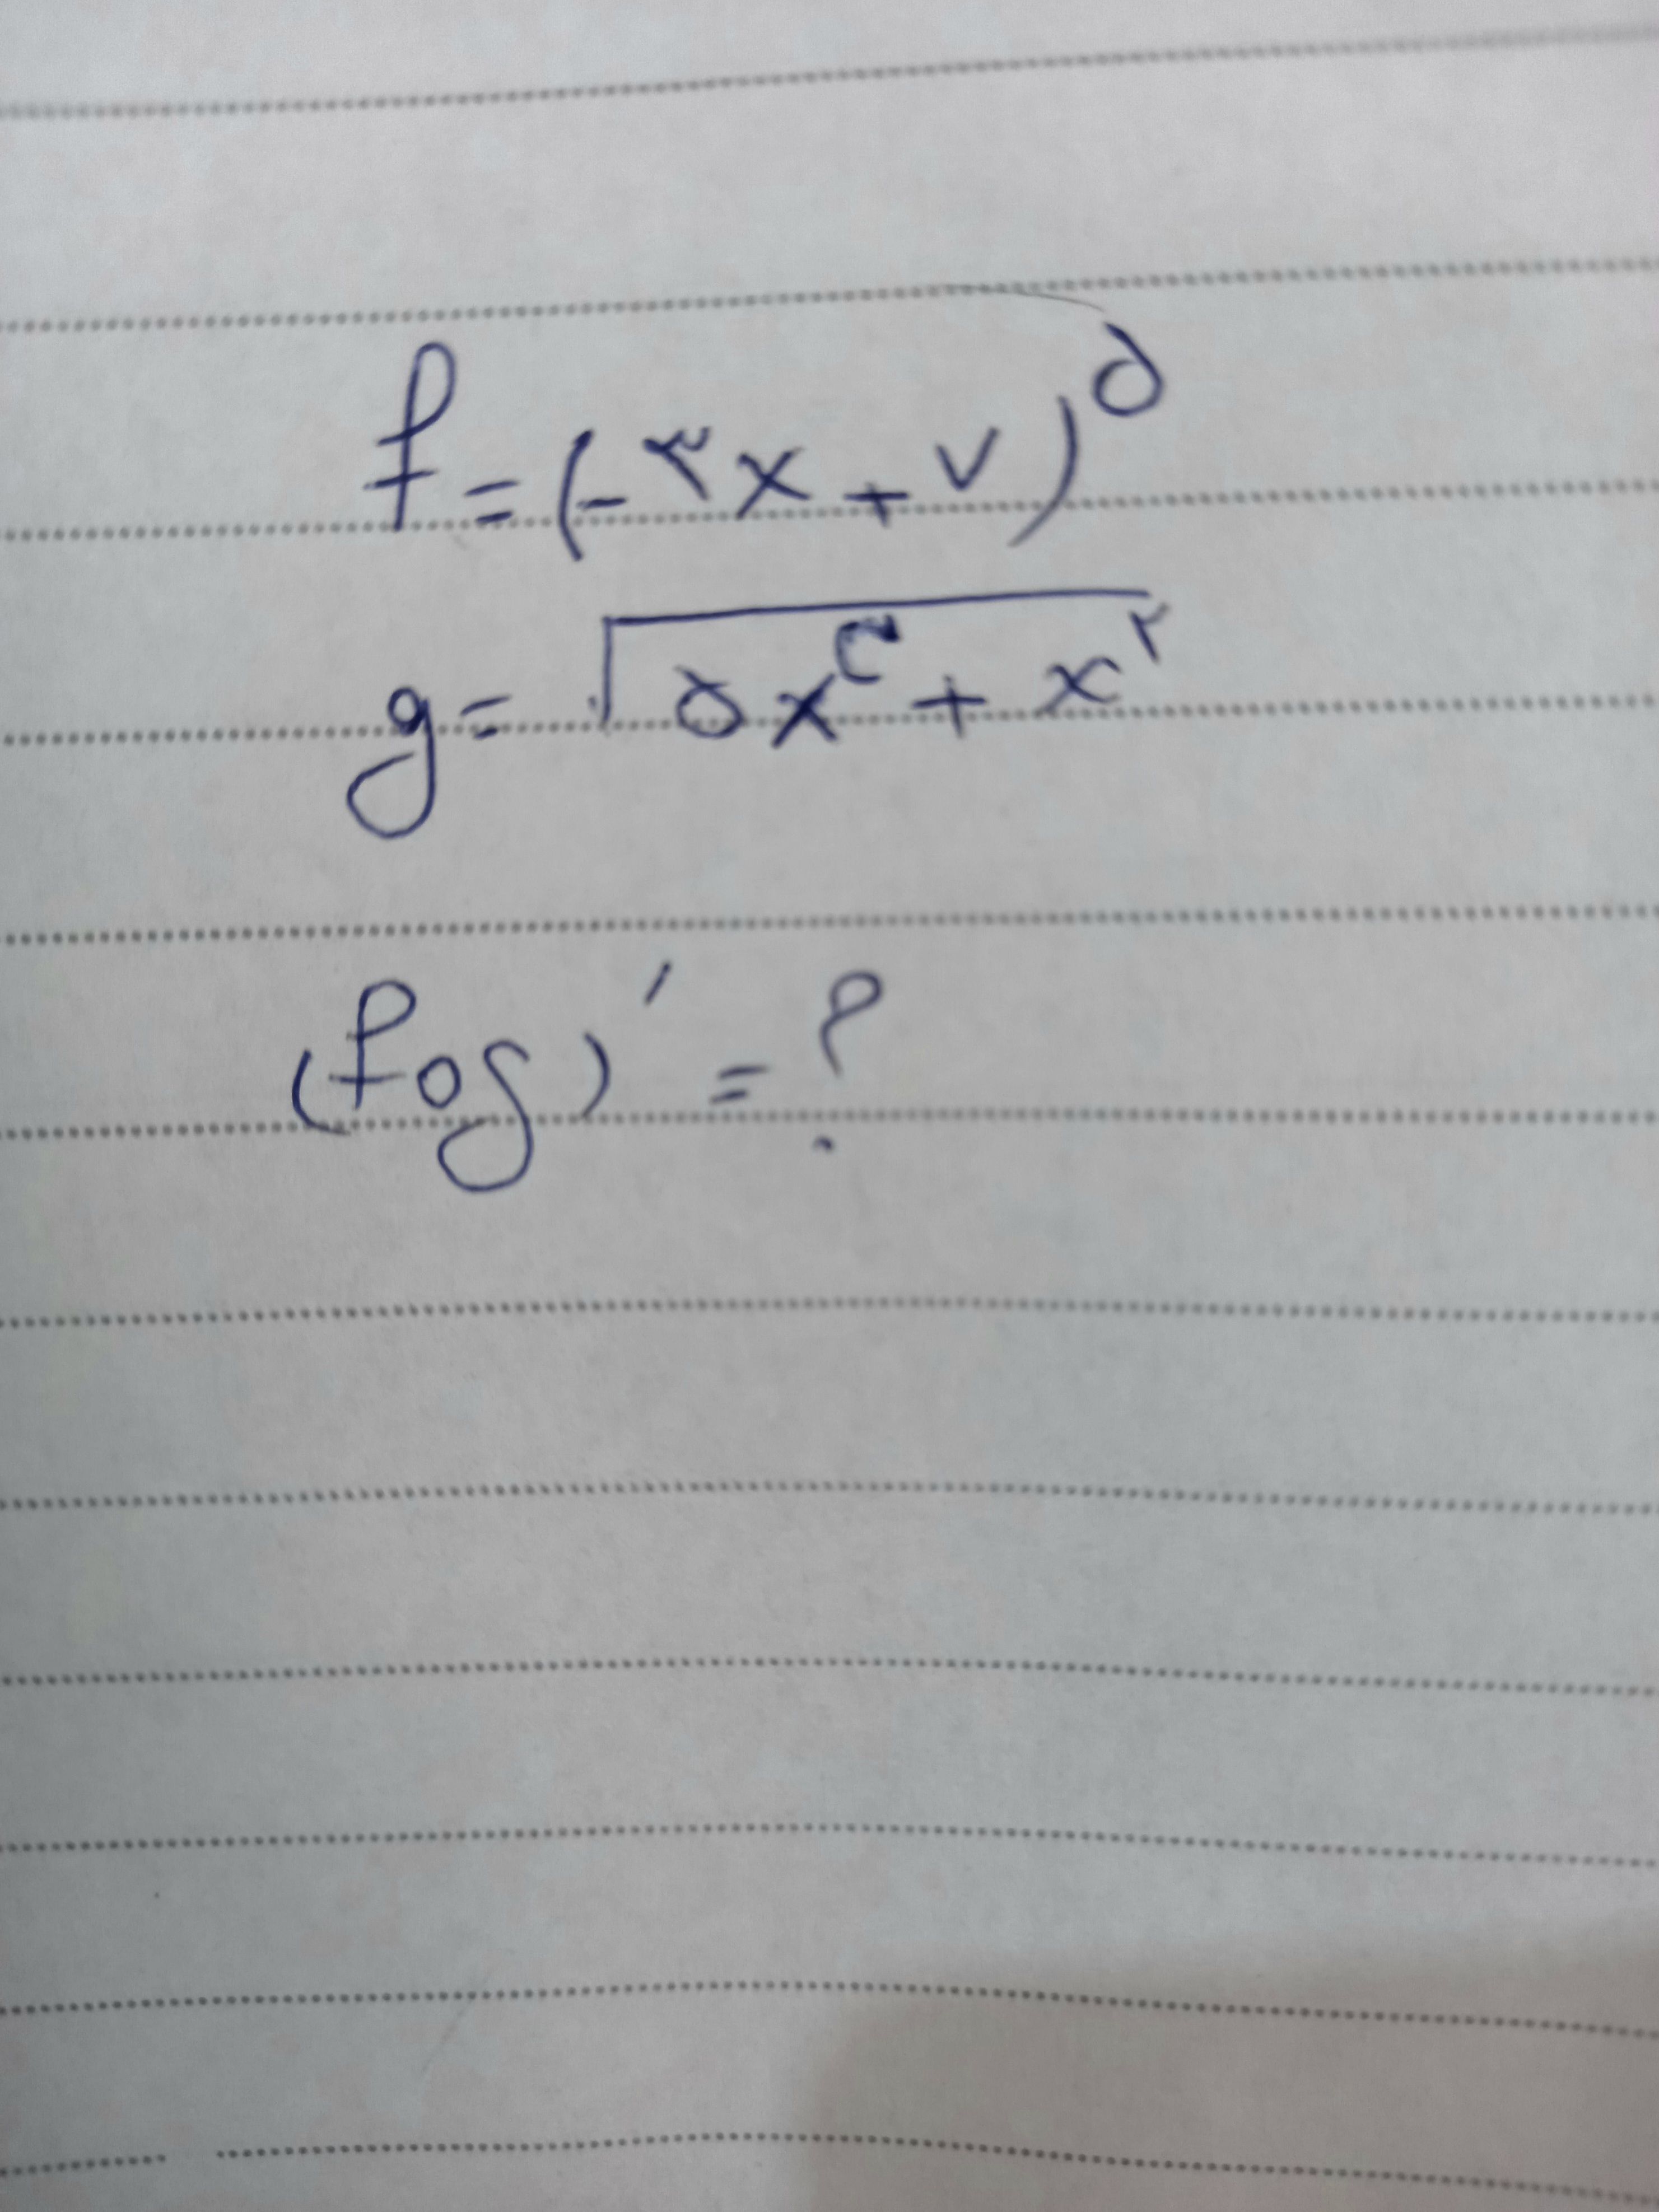 f = (-۳x + ۷)^۵
g = √(۵x^۳ + x^۲)
(fog)' = ?